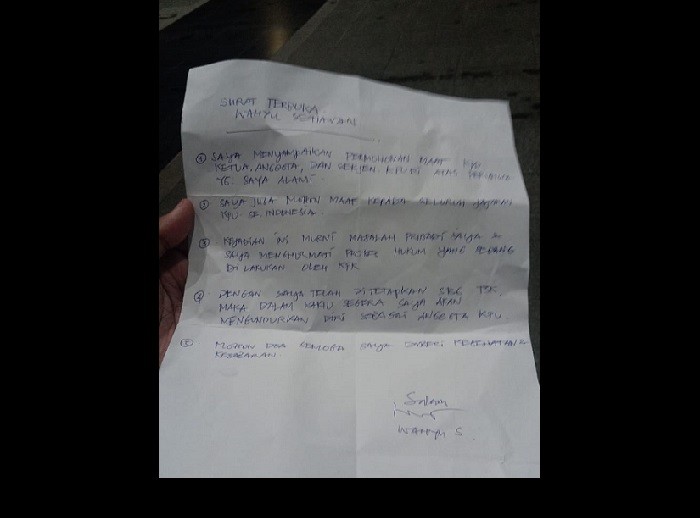 SURAT TERBUKA
WAHYU SETIAWAN
① SAYA MENYAMPAIKAN PERMOHONAN MAAF KPD
KETUA, ANGGOTA, DAN SEKJEN KPU RI ATAS PERISTIWA
YG SAYA ALAMI
② SAYA JUGA MOHON MAAF KEPADA SELURUH JAJARAN
KPU SE INDONESIA
③ KEJADIAN INI MURNI MASALAH PRIBADI SAYA &
SAYA MENGHORMATI PROSES HUKUM YANG SEDANG
DI LAKUKAN OLEH KPK
④ DENGAN SAYA TELAH DITETAPKAN SBG TSK
MAKA DALAM WAKTU SEGERA SAYA AKAN
MENGUNDURKAN DIRI SEBAGAI ANGGOTA KPU
⑤ MOHON DOA SEMOGA SAYA DIBERI
KESABARAN.
Salam
WAHYU S.